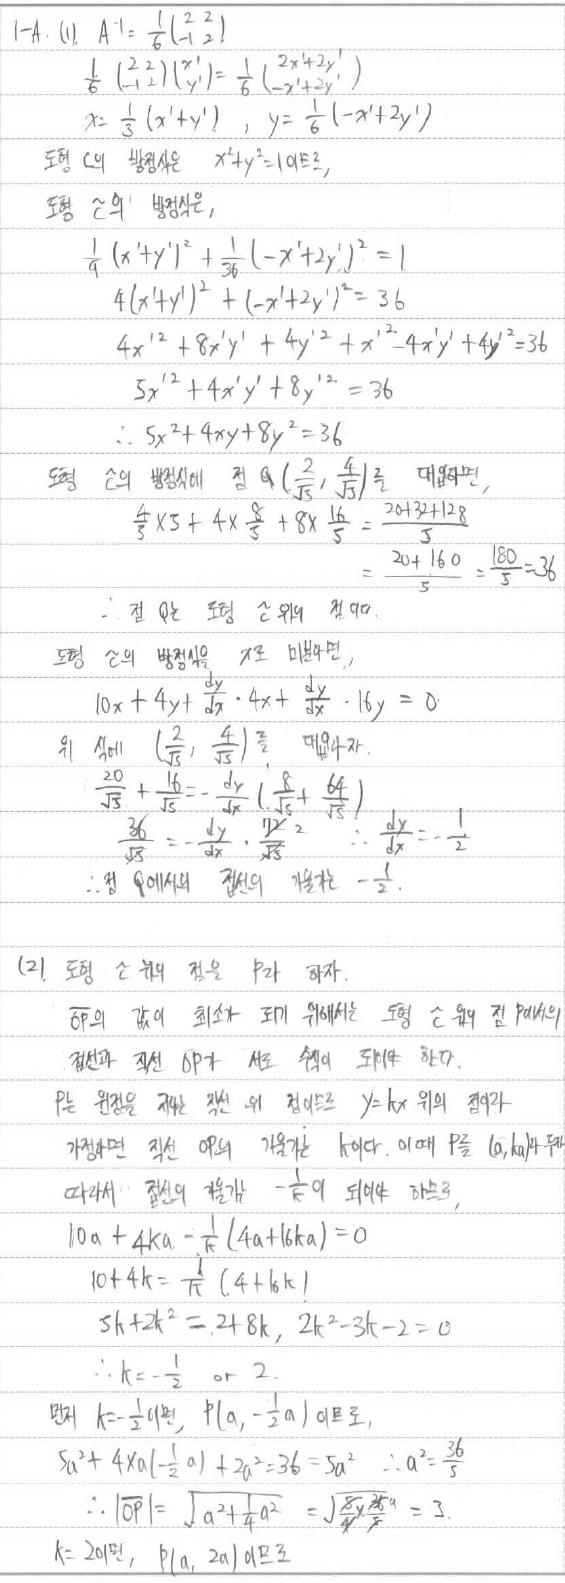 1-A. (1). A⁻¹ = 1/6 (2 2 / -1 2)
1/6 (2 2 / -1 2)(x' / y') = 1/6 (2x'+2y' / -x'+2y')
x = 1/3 (x'+y') , y = 1/6 (-x'+2y')
도형 C의 방정식은 x²+y²=1 이므로,
도형 C'의 방정식은,
1/9 (x'+y')² + 1/36 (-x'+2y')² = 1
4(x'+y')² + (-x'+2y')² = 36
4x'² + 8x'y' + 4y'² + x'² - 4x'y' + 4y'² = 36
5x'² + 4x'y' + 8y'² = 36
∴ 5x² + 4xy + 8y² = 36
도형 C'의 방정식에 점 Q (2/√5, 4/√5)를 대입하면,
4/5 × 5 + 4 × 8/5 + 8 × 16/5 = (20+32+128)/5
= (20+160)/5 = 180/5 = 36
∴ 점 Q는 도형 C' 위의 점이다.
도형 C'의 방정식을 x로 미분하면,
10x + 4y + dy/dx · 4x + dy/dx · 16y = 0
위 식에 (2/√5, 4/√5)를 대입하자.
20/√5 + 16/√5 = - dy/dx (8/√5 + 64/√5)
36/√5 = - dy/dx · 72/√5 2 ∴ dy/dx = -1/2
∴ 점 Q에서의 접선의 기울기는 -1/2.
(2) 도형 C' 위의 점을 P라 하자.
OP의 값이 최소가 되기 위해서는 도형 C' 위의 점 P에서의
접선과 직선 OP가 서로 수직이 되어야 한다.
P는 원점을 지나는 직선 위 점이므로 y=kx 위의 점이라
가정하면 직선 OP의 기울기는 k이다. 이때 P를 (a, ka)라 두자
따라서 접선의 기울기는 -1/k이 되어야 하므로,
10a + 4ka - 1/k (4a+16ka) = 0
10+4k = 1/k (4+16k)
5k+2k² = 2+8k, 2k²-3k-2 = 0
∴ k = -1/2 or 2.
먼저 k=-1/2이면, P(a, -1/2 a) 이므로,
5a² + 4×a(-1/2 a) + 2a² = 36 = 5a² ∴ a² = 36/5
∴ |OP| = √(a² + 1/4 a²) = √(5/4 × 36/5) 9 = 3.
k=2이면, P(a, 2a) 이므로